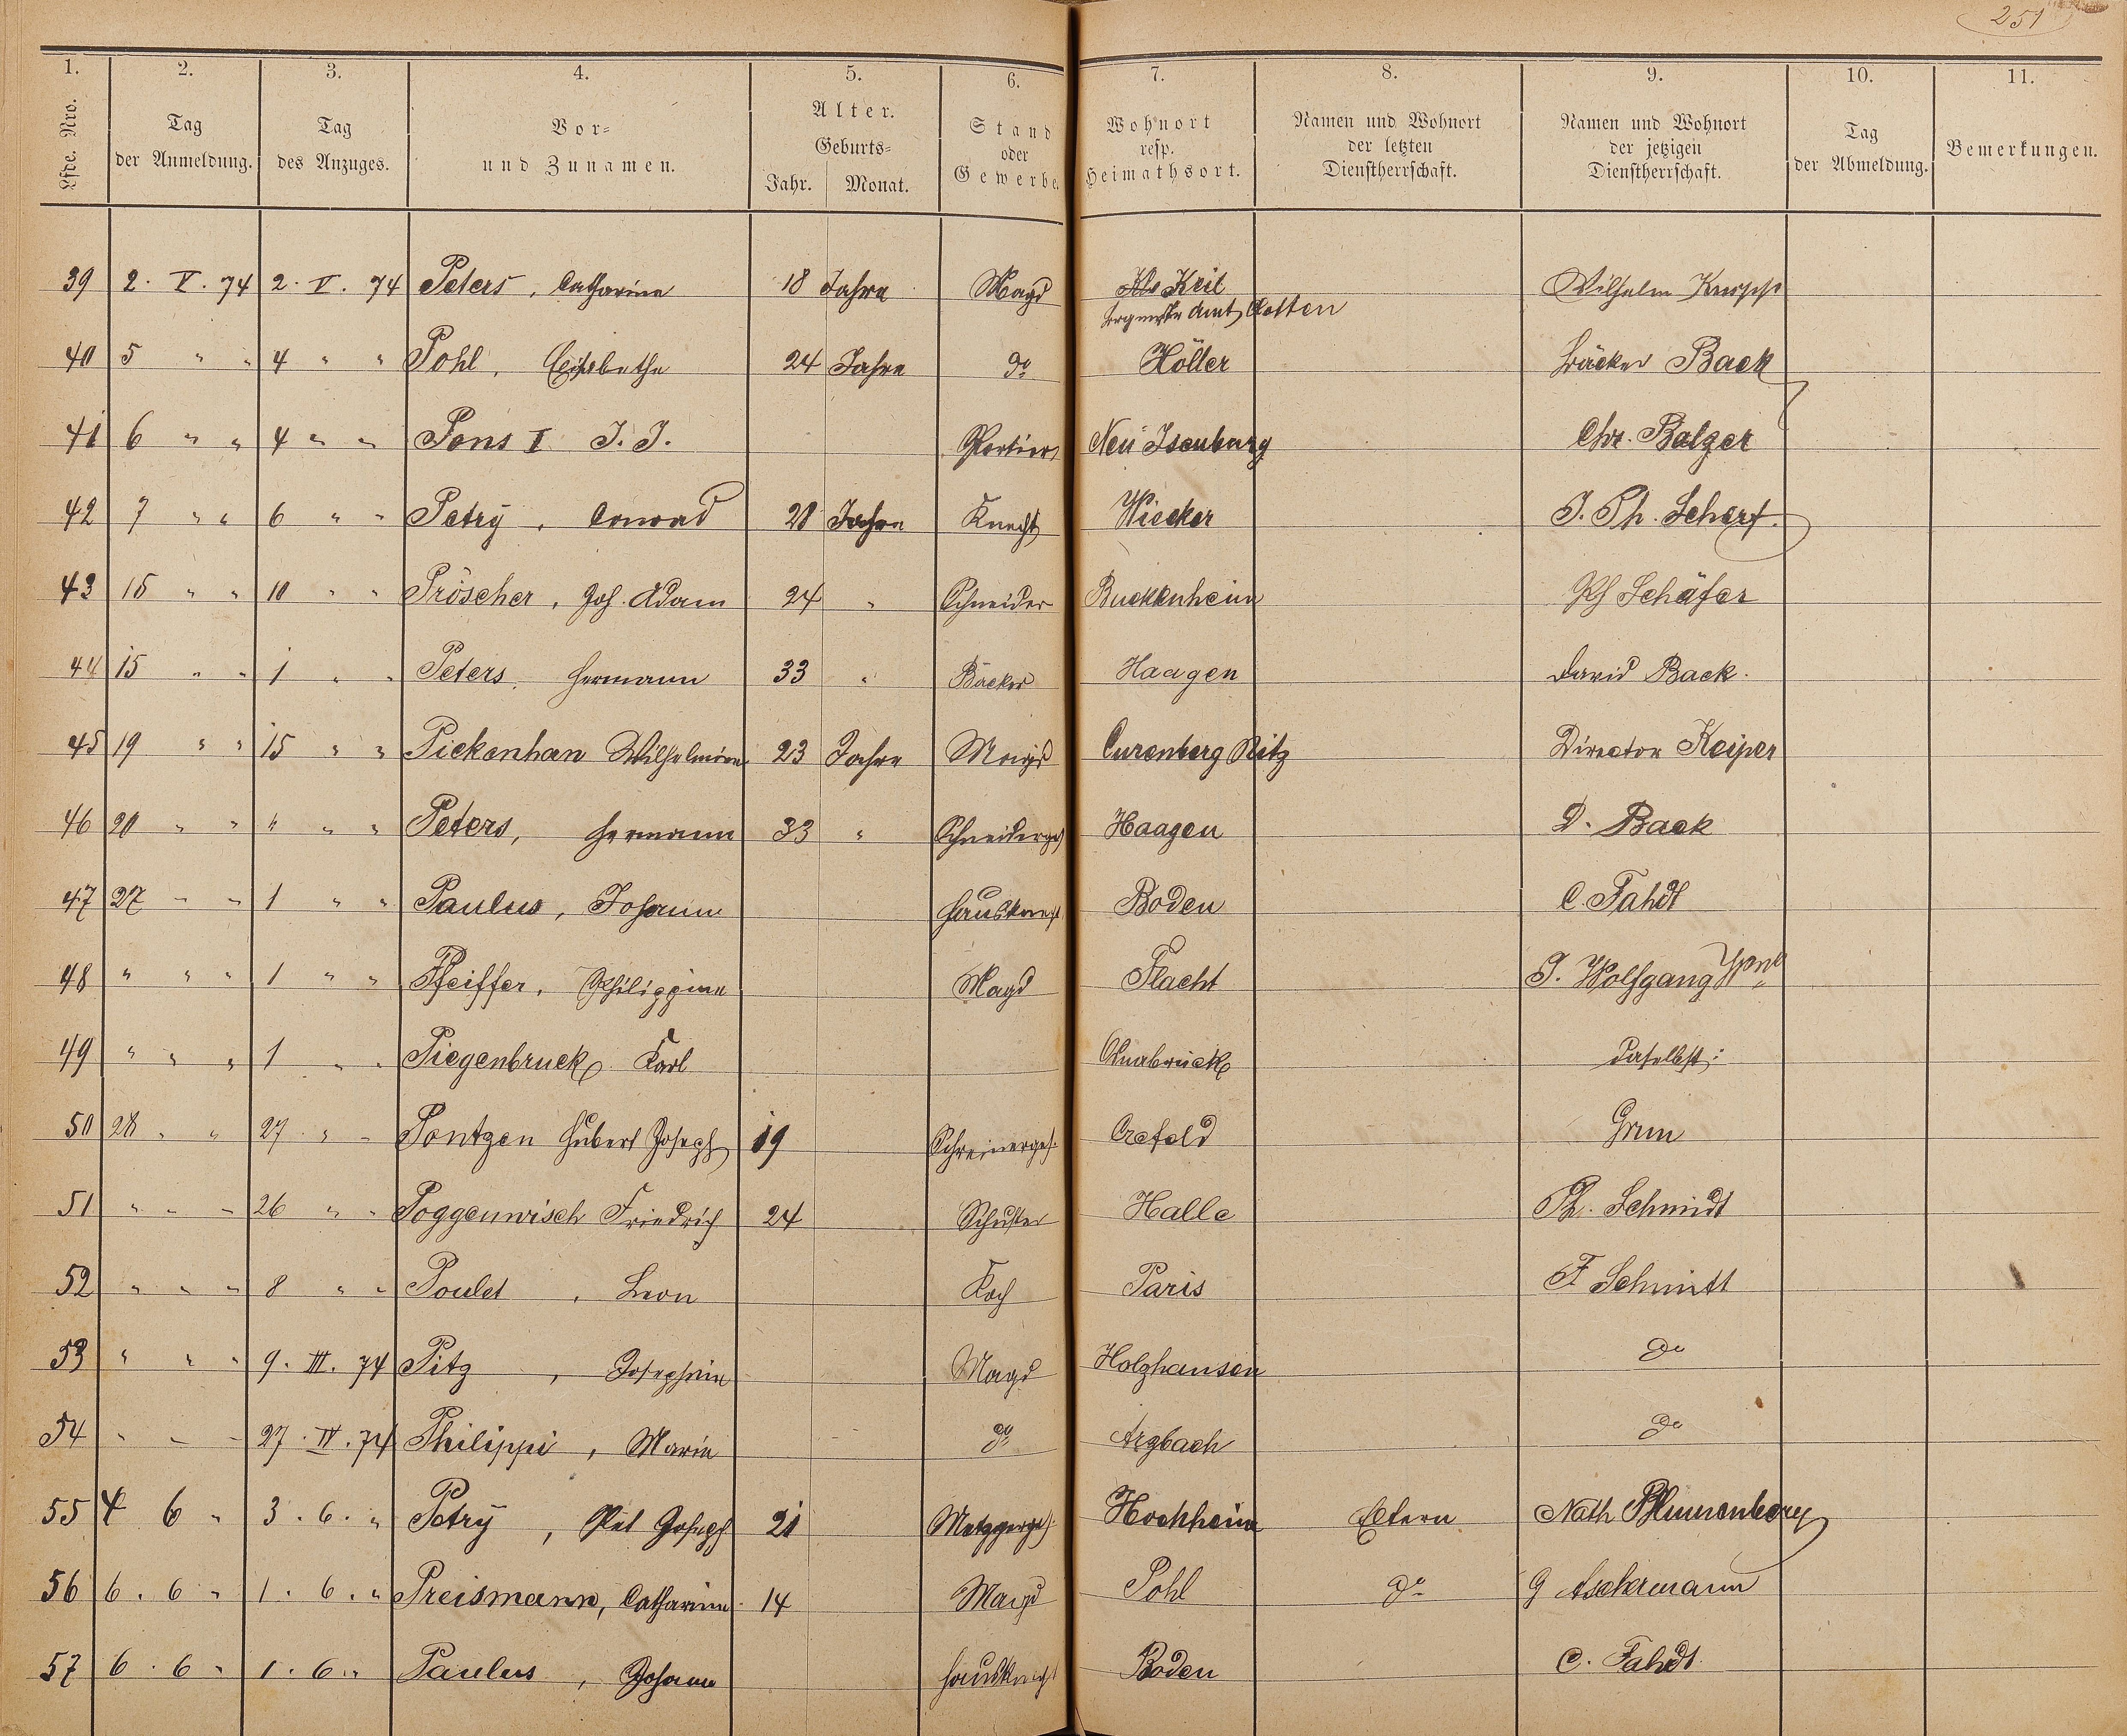 251
1. 2. 3. 4. 5. 6. 7. 8. 9. 10. 11.
Lfde. Nro. Tag der Anmeldung. Tag des Anzuges. Vor- und Zunamen. Alter. Geburts- Jahr. Monat. Stand oder Gewerbe. Wohnort resp. Heimathsort. Namen und Wohnort der letzten Dienstherrschaft. Namen und Wohnort der jetzigen Dienstherrschaft. Tag der Abmeldung. Bemerkungen.
39 2. V. 74 2. V. 74 Peters, Catharina 18 Jahre Magd Wilhelm
Amt
40 5 " " 4 " " Pohl, Elisabetha 24 Jahre do Höller Bäcker Back
41 6 " " 4 " " Pons I J. J. Portier Neu Isenburg Chr. Balzer
42 7 " " 6 " " Petry, Conrad 28 Jahre Knecht Wicker J. Ph. Scherf.
43 15 " " 10 " " Pröscher, Joh. Adam 24 " Schneider Buckenheim Schäfer
44 15 " " 1 " " Peters, Hermann 33 " Bäcker Haagen David Back.
45 19 " " 15 " " Piekenhan Wilhelmine 23 Jahre Magd Director Keiper
46 20 " " " " " Peters, Hermann 33 " Schneiderges Haagen D. Back
47 27 " " 1 " " Paulus, Johann Hausknecht Boden C. Fahdt
48 " " " 1 " " Pfeiffer, Philippine Magd Flacht J. Wolfgang Wwe
49 " " " 1 " " Piegenbruck Karl Osnabrück daselbst.
50 28 " " 27 " " Pontzen Hubert Joseph 19 Schreinerges. Crefeld Grun
51 " " " 26 " " Poggenwisch Friedrich 24 Schuster Halle Ph. Schmidt
52 " " " 8 " " Poulet, Leon Koch Paris F Schmitt
53 " " " 9. III. 74 Pitz, Josephine Magd Holzhausen do
54 " " " 27. IV. 74 Philippi, Maria do Arzbach do
55 4 6 " 3. 6. " Petry, Pet Joseph 21 Metzgerges. Hochheim Eltern Nath Blumenberg
56 6. 6 " 1. 6. " Preismann, Catharine 14 Magd Pohl do G Aschermann
57 6. 6 " 1. 6. " Paulus, Johann Hausknecht Boden C. Fahdt.